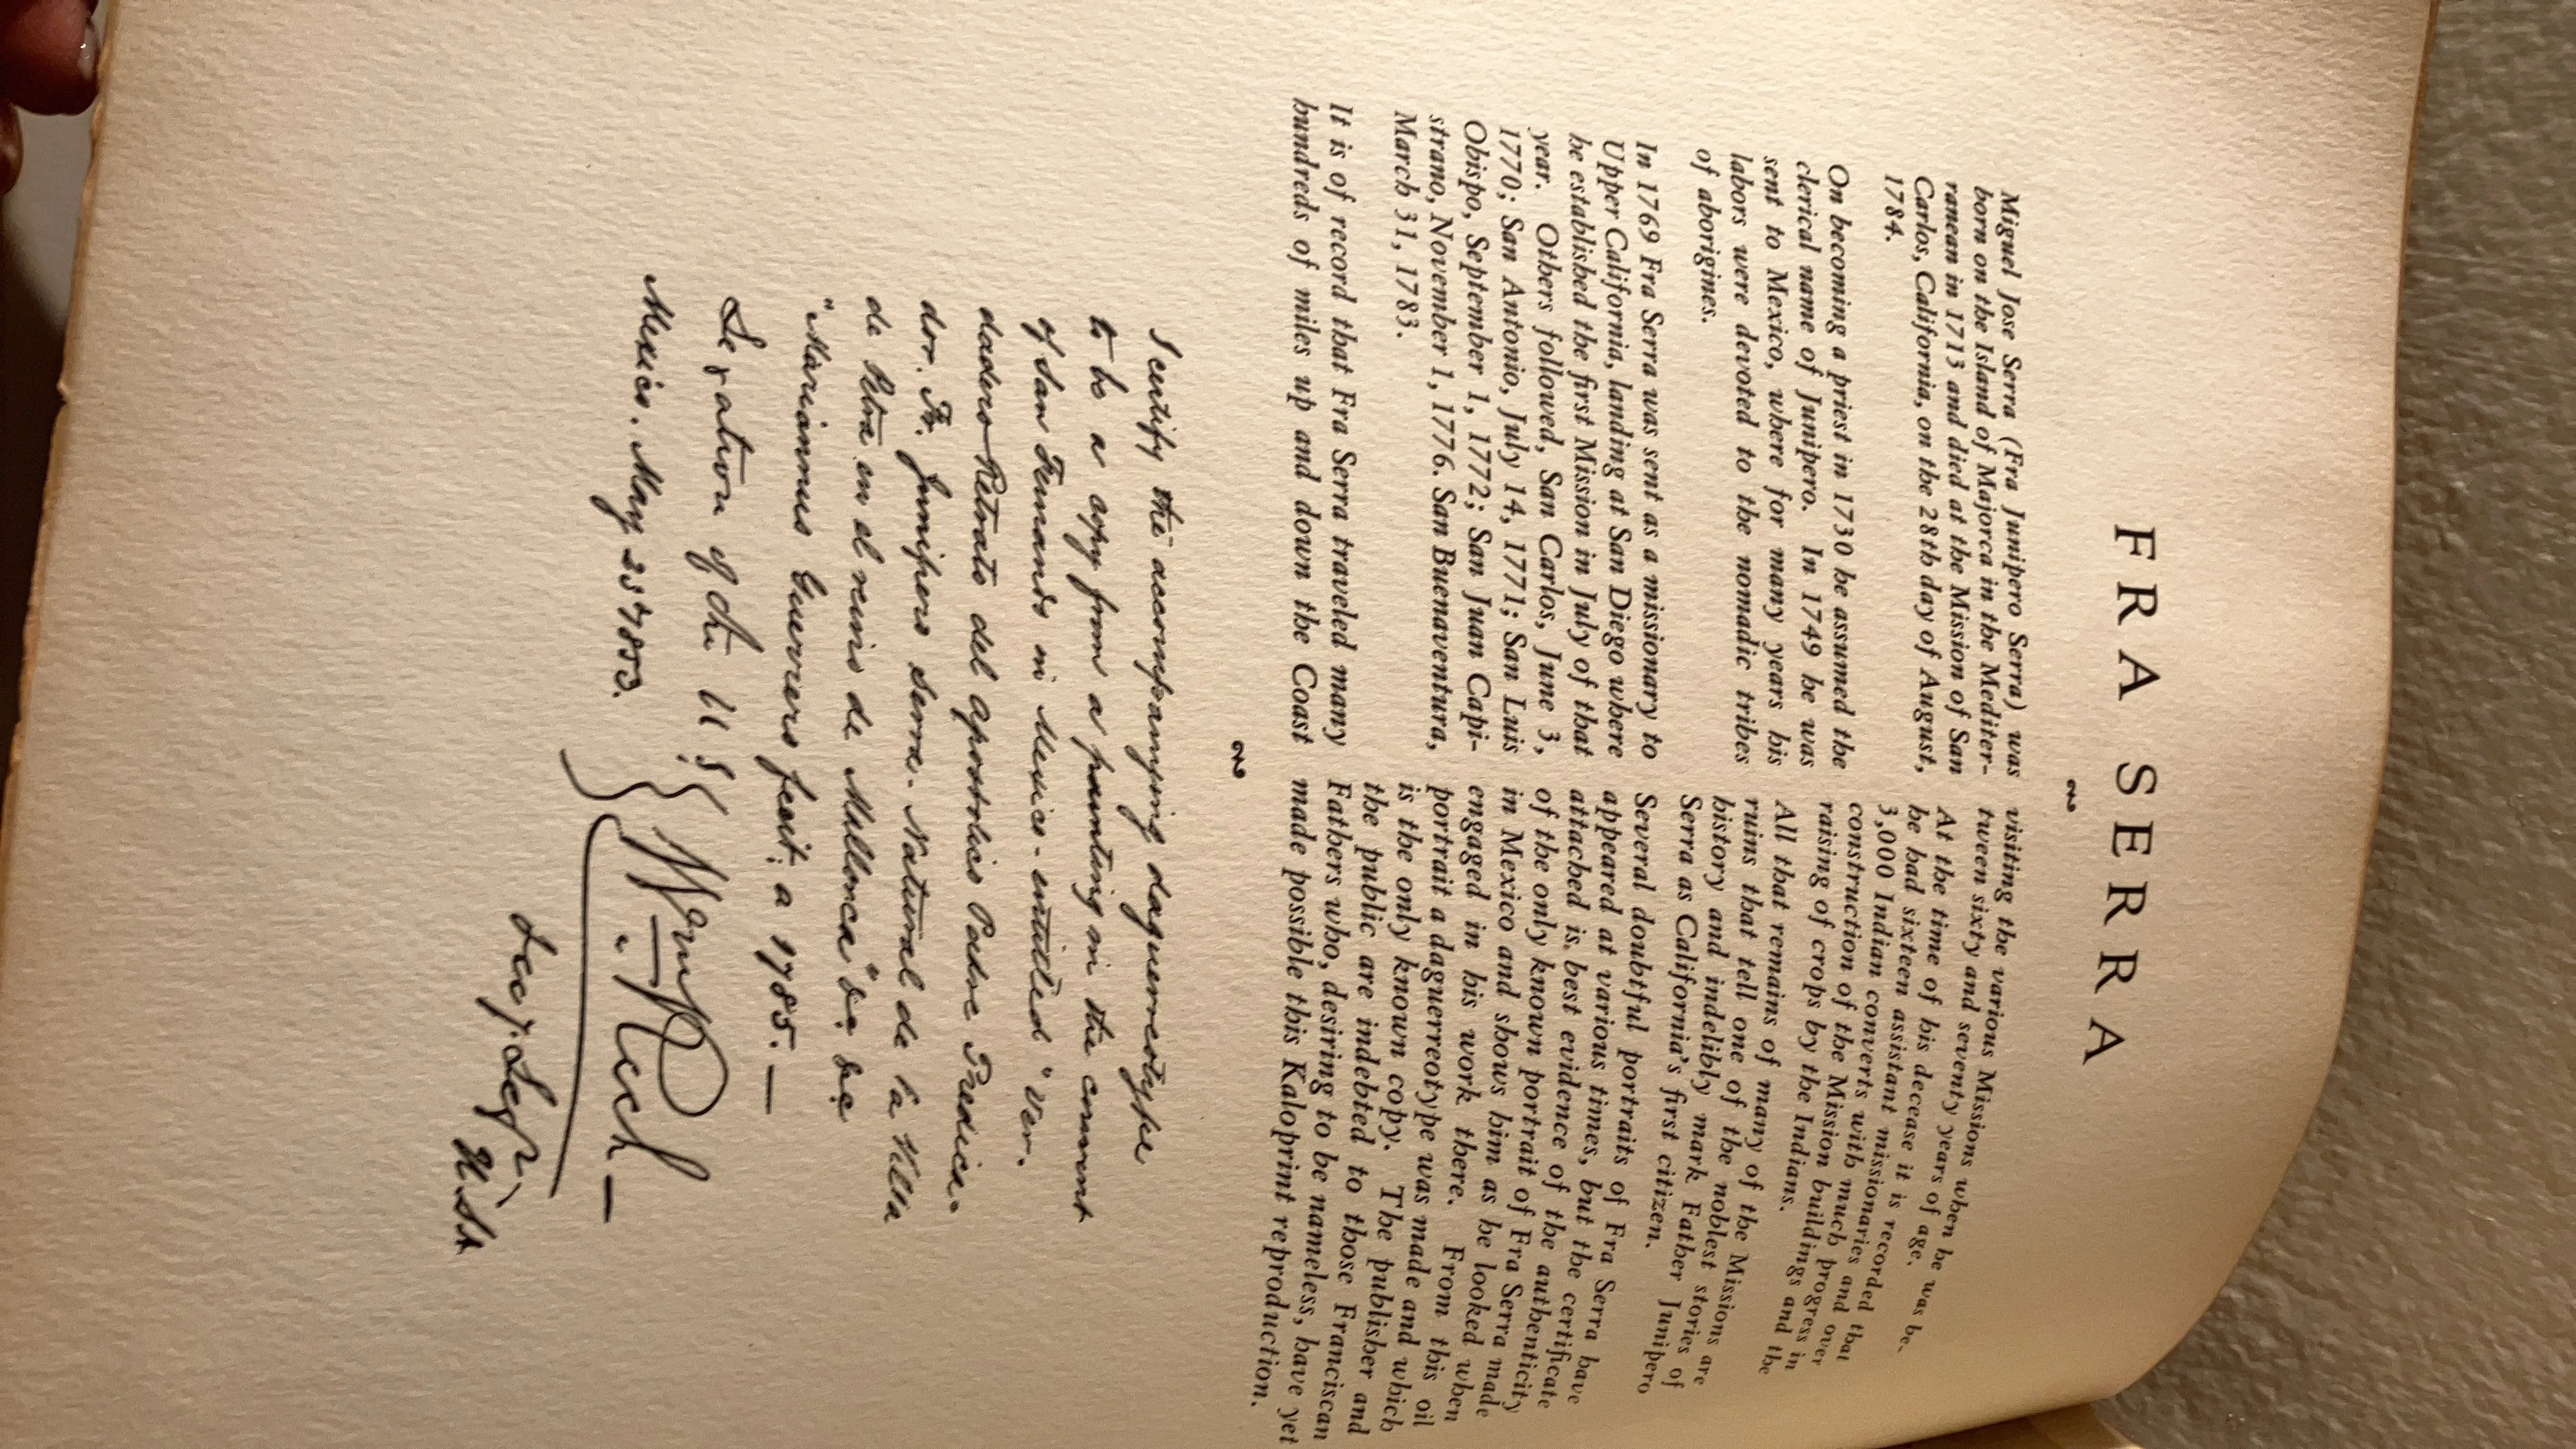 FRA SERRA
Miguel Jose Serra (Fra Junipero Serra) was
born on the Island of Majorca in the Mediter-
ranean in 1713 and died at the Mission of San
Carlos, California, on the 28th day of August,
1784.
On becoming a priest in 1730 he assumed the
clerical name of Junipero. In 1749 he was
sent to Mexico, where for many years his
labors were devoted to the nomadic tribes
of aborigines.
In 1769 Fra Serra was sent as a missionary to
Upper California, landing at San Diego where
he established the first Mission in July of that
year. Others followed, San Carlos, June 3,
1770; San Antonio, July 14, 1771; San Luis
Obispo, September 1, 1772; San Juan Capi-
strano, November 1, 1776. San Buenaventura,
March 31, 1783.
It is of record that Fra Serra traveled many
hundreds of miles up and down the Coast
visiting the various Missions when he was be-
tween sixty and seventy years of age.
At the time of his decease it is recorded that
he had sixteen assistant missionaries and over
3,000 Indian converts with much progress in
construction of the Mission buildings and the
raising of crops by the Indians.
All that remains of many of the Missions are
ruins that tell one of the noblest stories of
history and indelibly mark Father Junipero
Serra as California's first citizen.
Several doubtful portraits of Fra Serra have
appeared at various times, but the certificate
attached is best evidence of the authenticity
of the only known portrait of Fra Serra made
in Mexico and shows him as he looked when
engaged in his work there. From this oil
portrait a daguerreotype was made and which
is the only known copy. The publisher and
the public are indebted to those Franciscan
Fathers who, desiring to be nameless, have yet
made possible this Kaloprint reproduction.
I certify the accompanying daguerreotype
to be a copy from a painting in the convent
of San Fernando in Mexico - entitled "Ver-
dadero Retrato del apostolico Padre Predica-
dor. Fr. Junipero Serra. Natural de la Villa
de Petra en el reino de Mallorca" &c &c
"Mariannus Guerrero fecit, a 1785. —
Legation of the U S
Mexico. May 25 1853.
Wm Rich —
Secy. Legn.
U. St